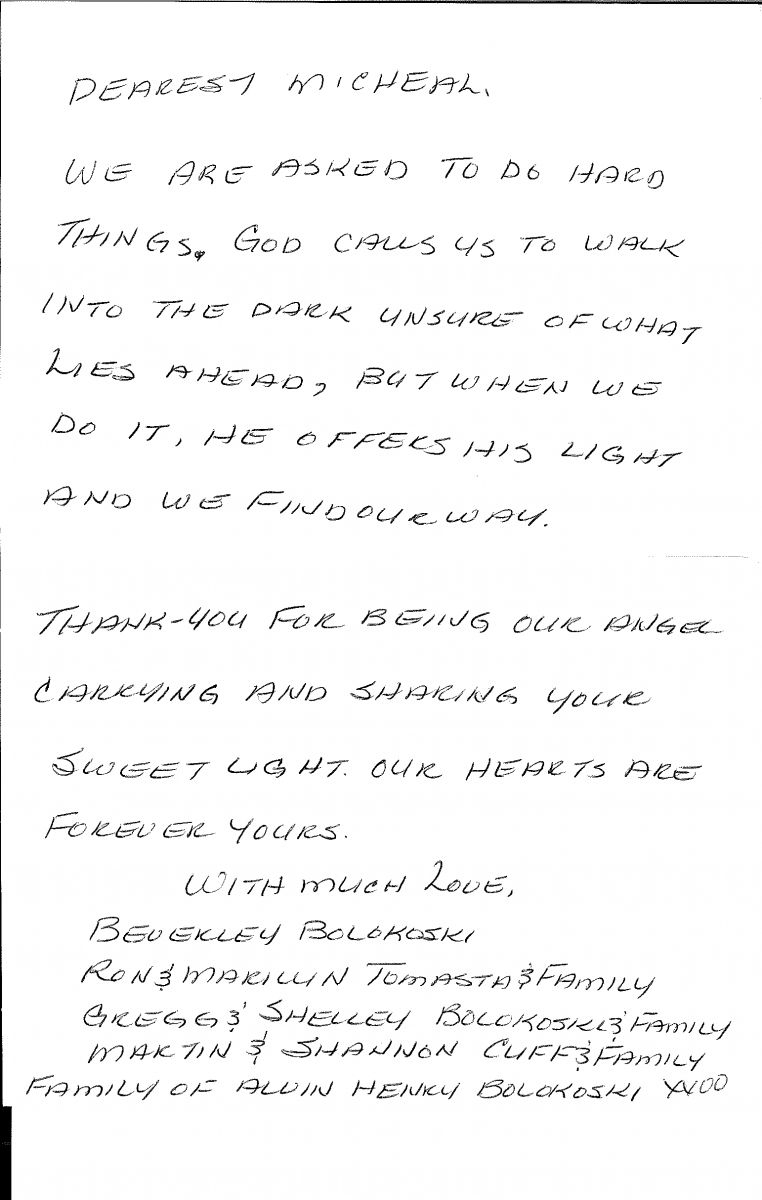 DEAREST MICHEAL.
WE ARE ASKED TO DO HARD
THINGS. GOD CALLS US TO WALK
INTO THE DARK UNSURE OF WHAT
LIES AHEAD, BUT WHEN WE
DO IT, HE OFFERS HIS LIGHT
AND WE FIND OUR WAY.
THANK-YOU FOR BEING OUR ANGEL
CARRYING AND SHARING YOUR
SWEET LIGHT. OUR HEARTS ARE
FOREVER YOURS.
WITH MUCH LOVE,
BEVERLEY BOLOKOSKI
RON & MARILYN TOMASTA & FAMILY
GREGG & SHELLEY BOLOKOSKI & FAMILY
MARTIN & SHANNON CUFF & FAMILY
FAMILY OF ALVIN HENRY BOLOKOSKI XXOO